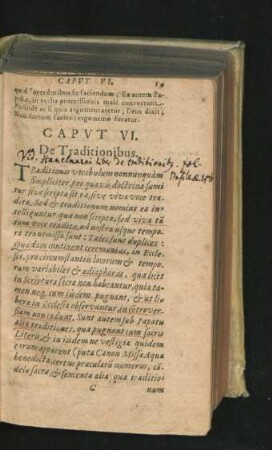 CAPVT VI. 19
quod sacerdotibus sit faciendum; En autem Pa-
pistæ, ut verba promissionis malè convertunt.
Perinde ac si quis argumentaretur; Deus dixit;
Non furtum facies; ergo nemo furatur.
CAPVT VI.
De Traditionibus.
de traditionib.
TRaditionis vocabulum nonnunquàm
simpliciter, pro quavis doctrina sumi
tur sive scripta sit ea, sive viva voce tra
dita, Sed & traditionum nomine ea in-
telliguntur quæ non scripta, sed viva tã
tùm voce tradita, ad nostra usque tempo
ra transmissa sunt: Tales sunt duplices:
Quædam continent ceremonias, in Eccle-
sia, pro circumstantiis locorum & tempo-
rum variabiles & adiaphoras, quæ licet
in Scriptura sacra non habeantur, quia ta-
men neq; cum eadem pugnant, & ut li-
beræ in Ecclesia observantur in controver-
siam non cadunt. Sunt autem sub Papatu
aliæ traditiones, quæ pugnant cum sacris
Literis, & in iis dem ne vestigia quidem
earum apparent (puta Canon Missæ Aqua
benedicta, certus precularū numerus, cā-
delæ sacræ, & sexcenta alia) quæ traditio-
C num